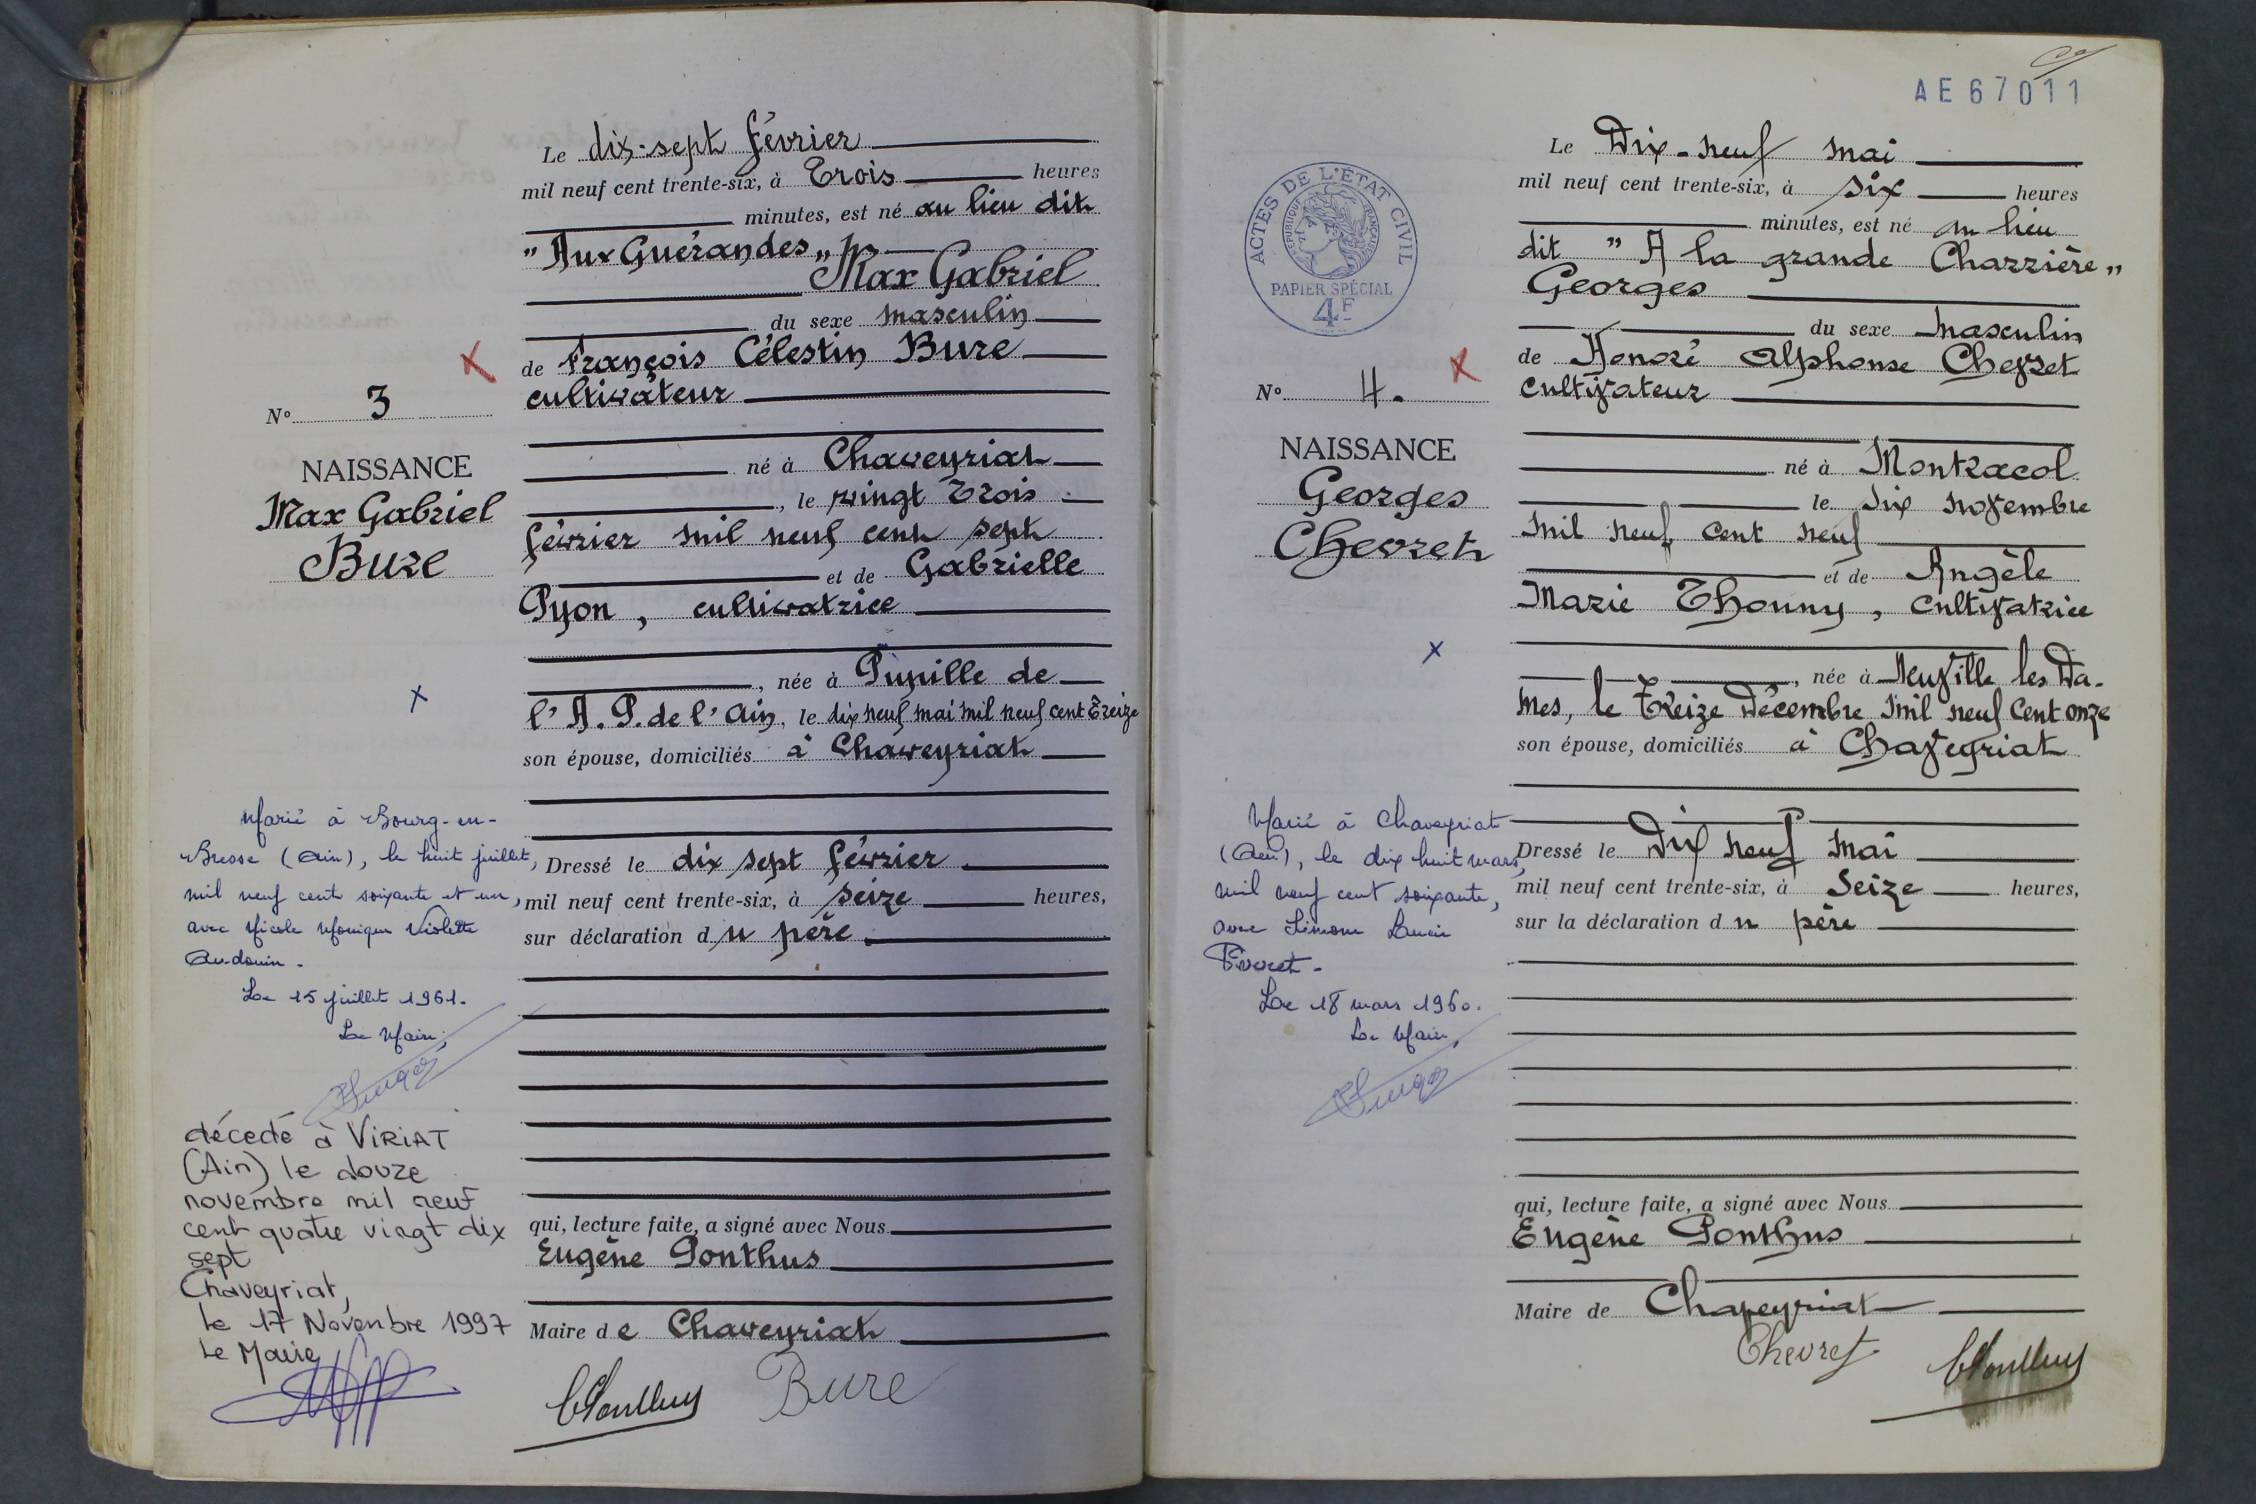 Le dix-sept février
mil neuf cent trente-six, à Trois heures
minutes, est né au lieu dit
" Aux Guérandes "
Max Gabriel
du sexe masculin
de François Célestin Bure
cultivateur
né à Chaveyriat
, le vingt Trois
février mil neuf cent sept
et de Gabrielle
Pyon, cultivatrice
, née à Pupille de
l'A.P. de l'Ain, le dix neuf mai mil neuf cent Treize
son épouse, domiciliés à Chaveyriat
Dressé le dix sept février
mil neuf cent trente-six, à seize heures,
sur déclaration du père
qui, lecture faite, a signé avec Nous
Eugène Ponthus
Maire de Chaveyriat
Bure
N° 3
NAISSANCE
Max Gabriel
Bure
Marié à Bourg-en-
Bresse (Ain), le huit juillet,
mil neuf cent soixante et un,
avec Nicole Monique Violette
Audouin.
Le 15 juillet 1961.
Le Maire,
décedé à VIRIAT
(Ain) le douze
novembre mil neuf
cent quatre vingt dix
sept
Chaveyriat,
le 17 Novembre 1997
Le Maire
AE67011
Le Dix-neuf mai
mil neuf cent trente-six, à six heures
minutes, est né au lieu
dit " A la grande Charrière "
Georges
du sexe masculin
de Honoré Alphonse Chevret
cultivateur
né à Montracol
le dix novembre
mil neuf cent neuf
et de Angèle
Marie Thouny, cultivatrice
, née à Neuville les Da-
mes, le Treize Décembre mil neuf cent onze
son épouse, domiciliés à Chaveyriat
Dressé le Dix neuf mai
mil neuf cent trente-six, à seize heures,
sur la déclaration du père
qui, lecture faite, a signé avec Nous
Eugène Ponthus
Maire de Chaveyriat
Chevret
ACTES DE L'ÉTAT CIVIL
RÉPUBLIQUE FRANÇAISE
PAPIER SPÉCIAL
4F
N° 4.
NAISSANCE
Georges
Chevret
Marié à Chaveyriat
(Ain), le dix huit mars,
mil neuf cent soixante,
avec Simone Lucie
Le 18 mars 1960.
Le Maire,